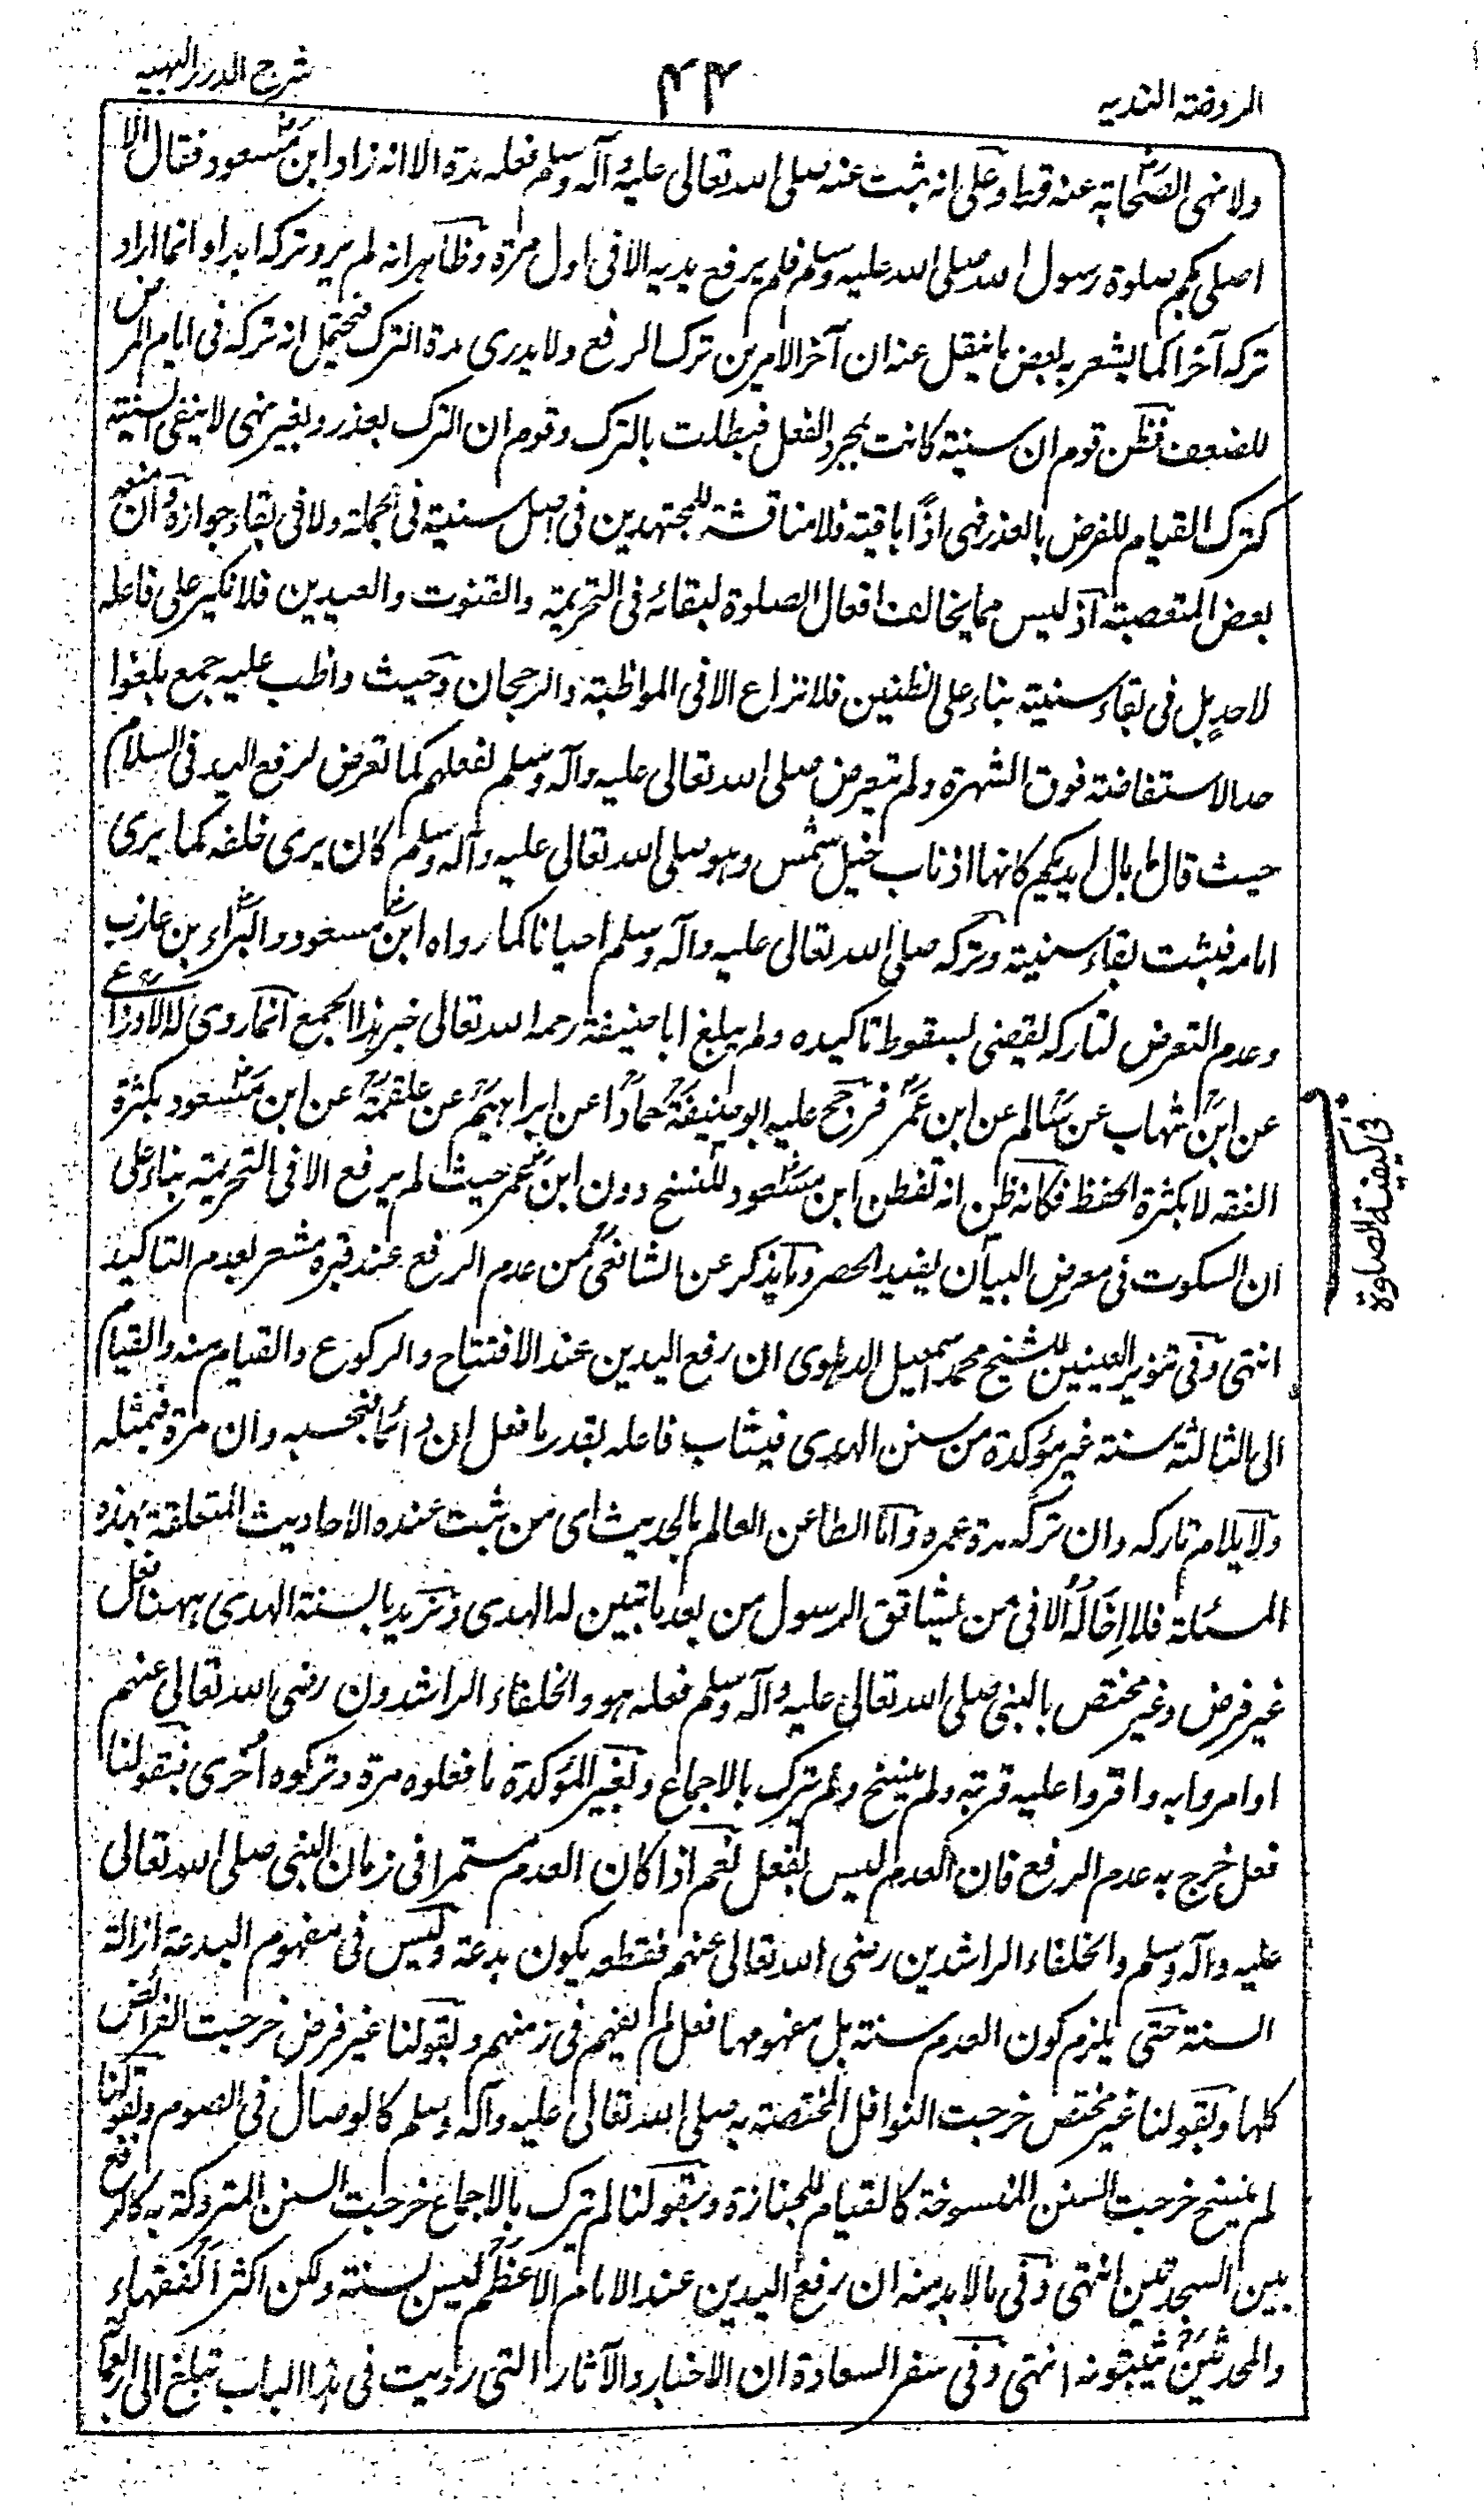 الروضة الندیه
۴۴
شرح الدرر البهیه
ولا نهى الصحابة عنه قط وعلى انه ثبت عنه صلى الله تعالى عليه وآله وسلم فعله مدة الا انه زاد ابن مسعود فقال الا
اصلى بكم صلوة رسول الله صلى الله عليه وسلم فلم يرفع يديه الا فى اول مرة وظاهره انه لم يرو تركه ابدا وانما اراد
تركه آخرا كما يشعر به بعض ما ينقل عنه ان آخر الامرين ترك الرفع ولا يدرى مدة الترك فيحتمل انه تركه فى ايام المرض
للضعف فظن قوم ان سنيته كانت بمجرد الفعل فبطلت بالترك وقوم ان الترك بعذر وبغير نهى لا ينفى السنية
كترك القيام للفرض بالعذر فهى اذًا باقية فلا مناقشة للمجتهدين فى اصل سنيته فى الجملة ولا فى بقاء جوازه وان منعه
بعض المتعصبة اذ ليس مما يخالف افعال الصلوة لبقائه فى التحريمة والقنوت والعيدين فلا نكير على فاعله
لاحد بل فى بقاء سنيته بناء على الظنين فلا نزاع الا فى المواظبة والرجحان وحيث واظب عليه جمع بلغوا
حد الاستفاضة فوق الشهرة ولم يتعرض صلى الله تعالى عليه وآله وسلم لفعلهم كما تعرض لرفع اليد فى السلام
حيث قال ما بال ايديكم كانها اذناب خيل شمس وهو صلى الله تعالى عليه وآله وسلم كان يرى خلفه كما يرى
امامه فيثبت بقاء سنيته وتركه صلى الله تعالى عليه وآله وسلم احيانا كما رواه ابن مسعود والبراء بن عازب
وعدم التعرض لتاركه يقضى بسقوط تاكيده ولم يبلغ ابا حنيفة رحمه الله تعالى خبر هذا الجمع انما روى له الاوزاعى
عن ابن شهاب عن سالم عن ابن عمر فرجح عليه ابو حنيفة حمادا عن ابراهيم عن علقمة عن ابن مسعود بكثرة
الفقه لا بكثرة الحفظ فكانه ظن انه تفطن ابن مسعود للنسخ دون ابن عمر حيث لم يرفع الا فى التحريمة بناء على
ان السكوت فى معرض البيان يفيد الحصر وما يذكر عن الشافعى من عدم الرفع عند قبره مشعر بعدم التاكيد
انتهى وفى تنوير العينين للشيخ محمد اسمعيل الدهلوى ان رفع اليدين عند الافتتاح والركوع والقيام منه والقيام
الى الثالثة سنة غير مؤكدة من سنن الهدى فيثاب فاعله بقدر ما فعل ان دائما فبحسبه وان مرة فبمثله
ولا يلام تاركه وان تركه مدة عمره واما الطاعن العالم بالحديث اى من ثبت عنده الاحاديث المتعلقة بهذه
المسئلة فلا اِخَالُهُ الا فى من يشاقق الرسول من بعد ما تبين له الهدى ونريد بالسنة الهدى ههنا فعل
غير فرض وغير مختص بالنبى صلى الله تعالى عليه وآله وسلم فعله هو والخلفاء الراشدون رضى الله تعالى عنهم
او امروا به واقروا عليه قربة ولم ينسخ ولم يترك بالاجماع وبغير المؤكدة ما فعلوه مرة وتركوه اخرى فبقولنا
فعل خرج به عدم الرفع فان العدم ليس بفعل نعم اذا كان العدم مستمرا فى زمان النبى صلى الله تعالى
عليه وآله وسلم والخلفاء الراشدين رضى الله تعالى عنهم فقطعه يكون بدعة وليس فى مفهوم البدعة ازالة
السنة حتى يلزم كون العدم سنة بل مفهومها فعل لم يفهم فى زمنهم وبقولنا غير فرض خرجت الفرائض
كلها وبقولنا غير مختص خرجت النوافل المختصة به صلى الله تعالى عليه وآله وسلم كالوصال فى الصوم وبقولنا
لم ينسخ خرجت السنن المنسوخة كالقيام للجنازة وبقولنا لم يترك بالاجماع خرجت السنن المتروكة به كالرفع
بين السجدتين انتهى وفى مالابدمنه ان رفع اليدين عند الامام الاعظم ليس بسنة ولكن اكثر الفقهاء
والمحدثين يثبتونه انتهى وفى سفر السعادة ان الاخبار والآثار التى رويت فى هذا الباب تبلغ الى اربعمائة
فى كيفية الصلوة